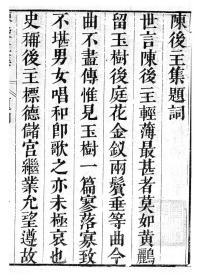 陳後主集題詞
世言陳後主輕薄最甚者莫如黃鸝
留玉樹後庭花金釵兩鬢垂等曲今
曲不盡傳惟見玉樹一篇寥落寡致
不堪男女唱和卽歌之亦未極哀也
史稱後主標德儲宮繼業允望遵故